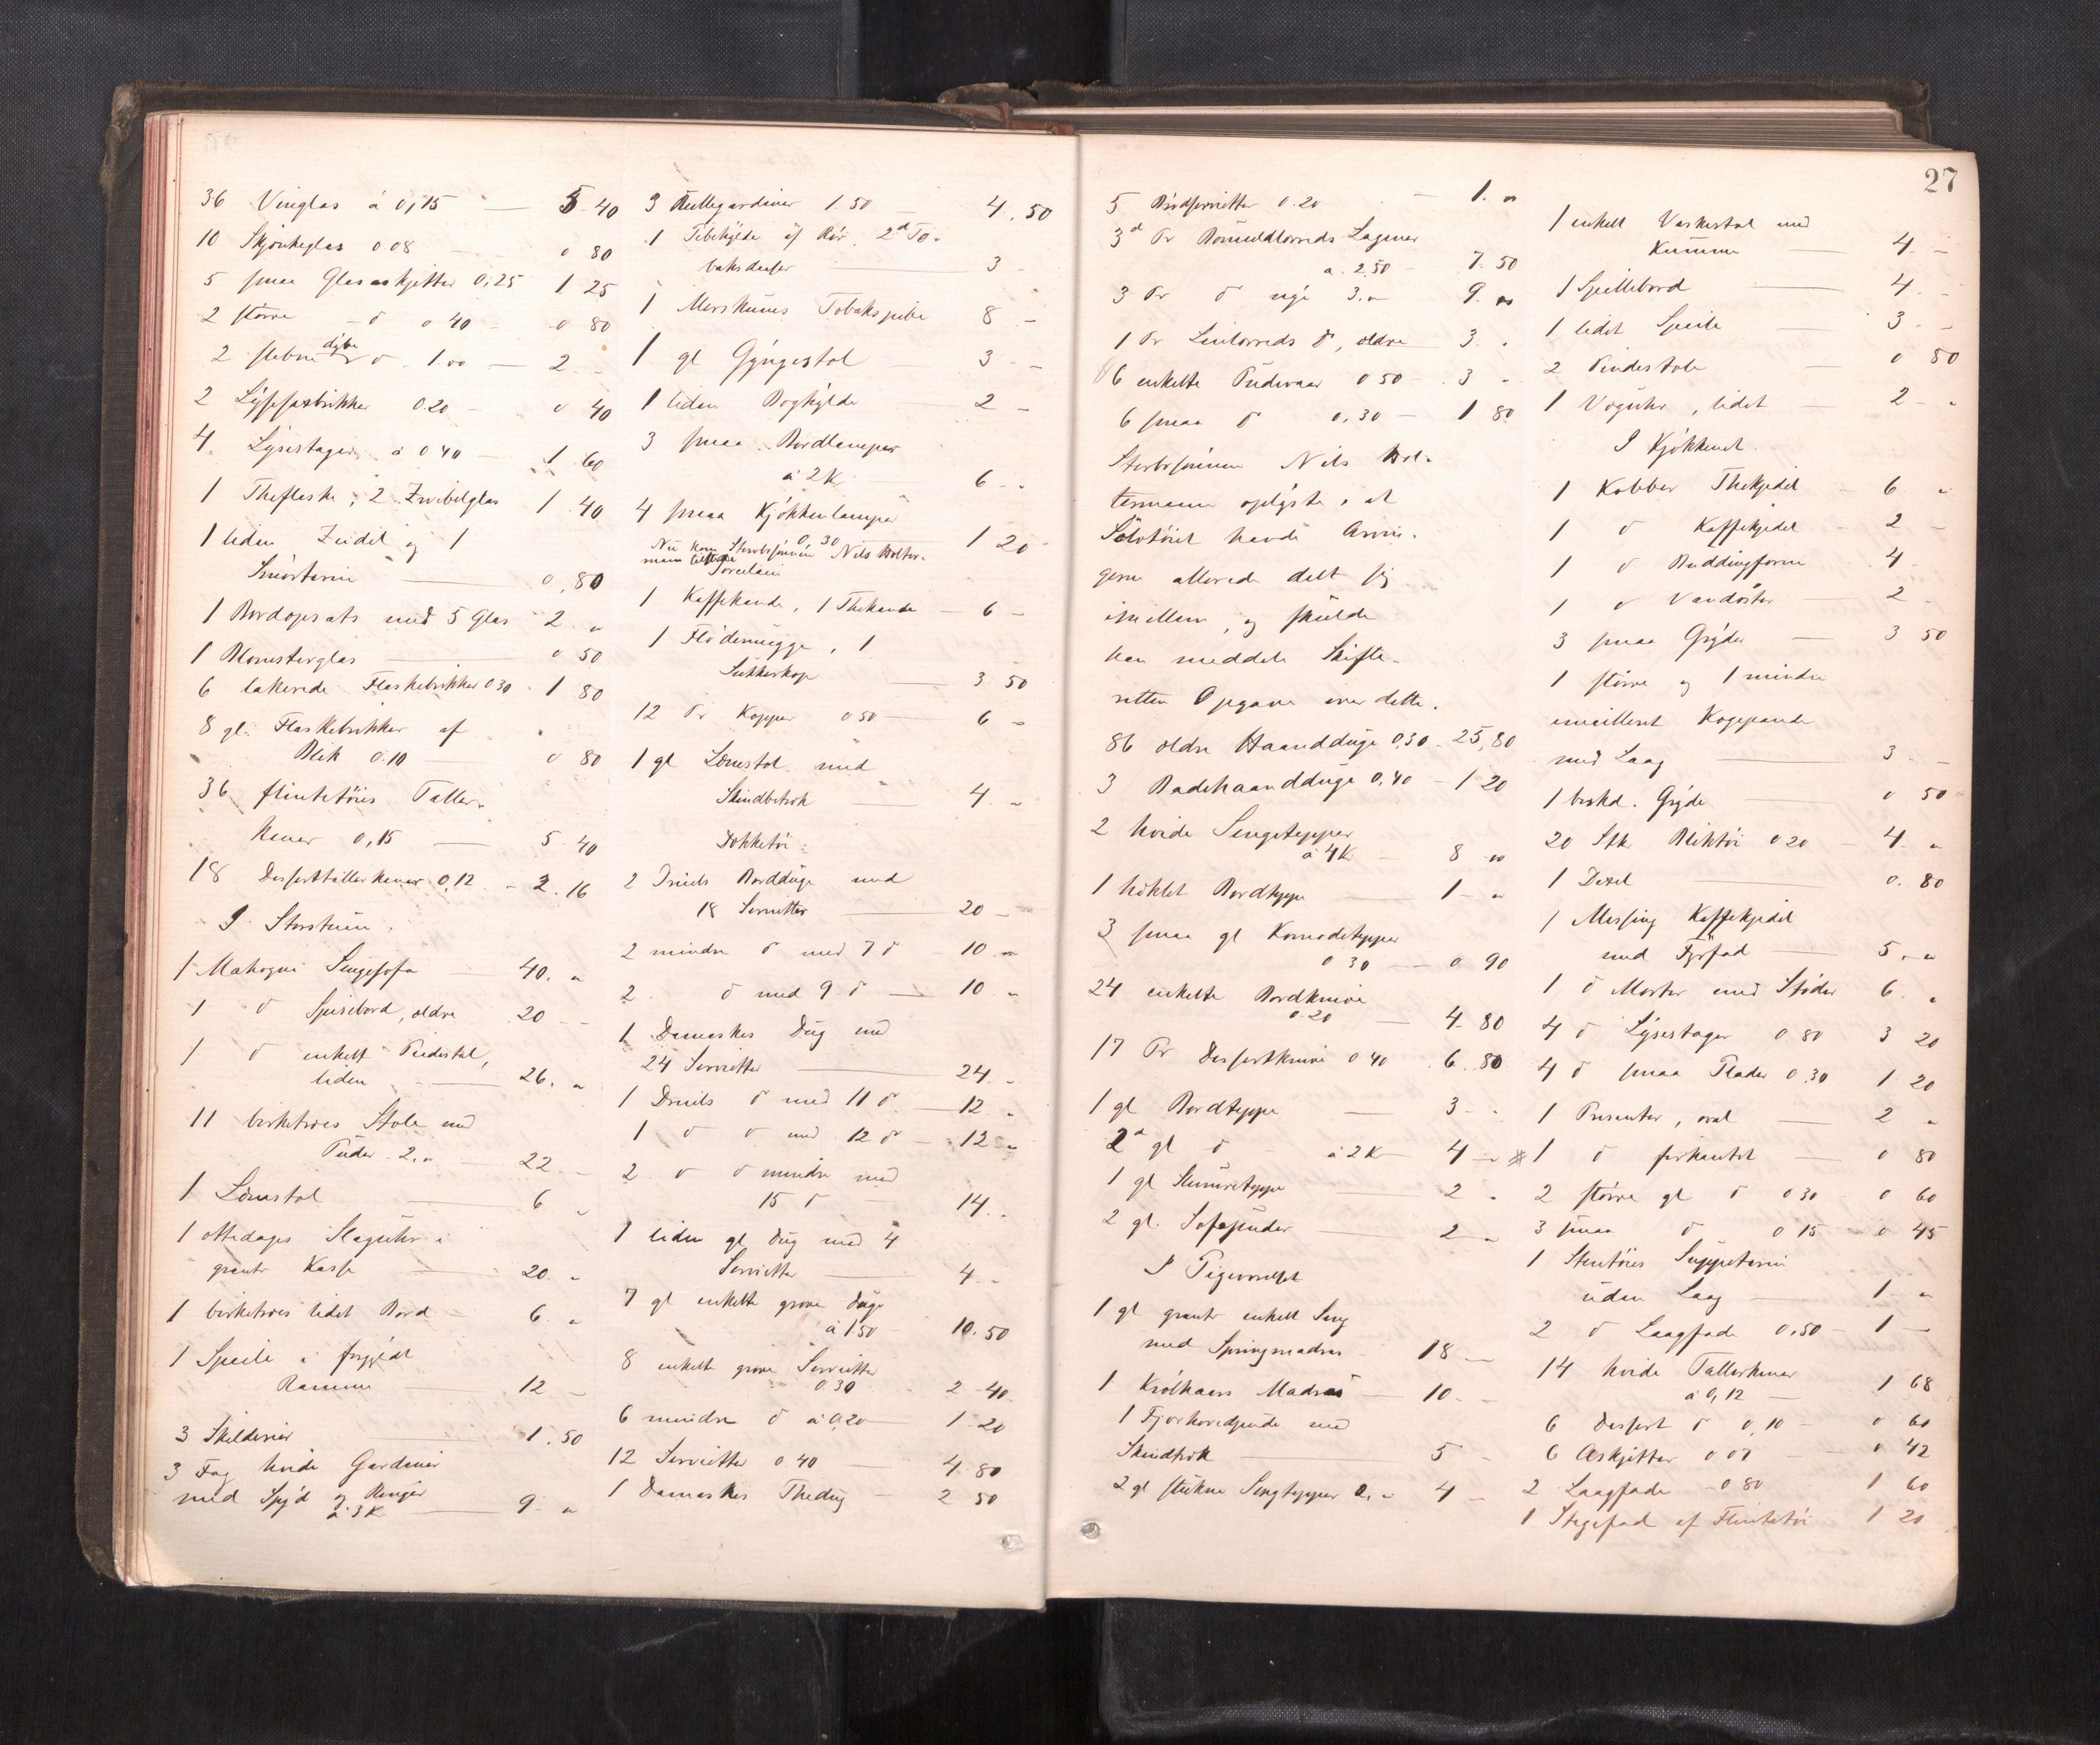 36 Vinglas á 0,15 — 5 40
10 Skjænkeglas 0 08 — 0 80
5 smaa Glasaskjetter 0,25 1 25
2 større — d 0 40 — 0 80
2 slebne dybe d 1.00 — 2 "
2 Lysesaxbrikker 0.20 — 0 40
4 Lysestager á 0 40 — 1 60
1 Theflaske, 2 Zwibelglas 1 40
1 liden Zeidel og 1
Smørterin — 0,80
1 Bordopsats med 5 Glas 2 "
1 Blomsterglas — 0 50
6 lakerede Flaskebrikker 0 30 1 80
8 gl. Flaskebrikker af
Blik 0.10 — 0 80
36 flintetøies Taller-
kener 0,15 — 5 40
18 Desserttallerkener 0,12 - 2.16
I Storstuen.
1 Mahogni Sengesofa — 40. "
1 d Spisebord, ældre 20 -
1 d enkelt Piedestal,
liden — 26. "
11 birketræes Stole med
Puder 2. " — 22 -
1 Lænestol — 6 "
1 ottedages Slaguhr i
grant Kasse — 20. "
1 birketræes lidet Bord — 6. "
1 Speile i forgyldt
Ramme — 12 -
3 Skilderier — 1.50
3 Fag hvide Gardiner
med Spyd og Ringer
á 3 K — 9. "
3 Rullegardiner 1.50 — 4.50
1 Pibehylde af Rør, 2 To-
baksdaaser — 3 -
1 Merskums Tobakspibe 8 -
1 gl Gyngestol 3 -
1 liden Boghylde 2 -
3 smaa Bordlamper
á 2 K 6 - -
4 smaa Kjøkkenlamper
0,30 1 20
Nu kom Stervbsønnen Nils Wolter-
mann tilstede
Porcelain
1 Kaffekande, 1 Thekande — 6 -
1 Flødemugge, 1
Sukkerkop — 3 50
12 Pr Kopper 0 50 — 6 -
1 gl Lænestol med
Skindbetræk — 4 -
Dækketøi:
2 Dreiels Bordduge med
18 Servietter — 20 -
2 mindre d med 7 d — 10 "
2 d med 9 d — 10 "
1 Damaskes Dug med
24 Servietter — 24 -
1 Dreiels d med 11 d — 12 "
1 d d med 12 d — 12 "
2 d d mindre med
15 d 14. "
1 liden gl Dug med 4
Servietter — 4 "
7 gl enkelte grove Duge
á 1 50 10.50
8 enkelt grove Servietter
0.30 2 40
6 mindre d á 0,20 1 20
12 Servietter 0 40 — 4.80
1 Damaskes Thedug — 2 50
27
5 Brødservietter 0.20 — 1. "
3 Pr Bomuldlærreds Lagener
a. 2.50 — 7.50
3 Pr d nye 3. " 9. "
1 Pr Linlærreds d, ældre 3. "
6 enkelte Pudevaar 0 50 — 3 "
6 smaa d 0,30 — 1 80
Stervbsønnen Nils Wol-
termann oplyste, at
Sølvtøiet havde Arvin-
gerne allerede delt sig
imellem, og skulde
han meddele Skifte-
retten Opgave over dette.
86 ældre Haandduge 0,30 - 25,80
3 Badehaandduge 0,40 — 1 20
2 hvide Sengetepper
á 4 K — 8 "
1 hæklet Bordteppe — 1 - "
3 smaa gl Komodetepper
0 30 — 0 90
24 enkelte Bordknive
0 20 — 4 80
17 Pr Dessertknive 0 40 6.80
1 gl Bordteppe — 3 - "
2 gl d á 2 K — 4 - "
1 gl Stueteppe 2 "
2 gl. Sofapuder — 2 "
I Pigeværelset
1 gl grant enkelt Seng
med Springmadras — 18 -
1 Krølhaars Madras — 10 -
1 Fjærhovedpude med
Skindtræk — 5 -
2 gl stukne Sengtepper 2. " 4 -
1 enkelt Vaskestol med
Kumme — 4 -
1 Spillebord — 4 -
1 lidet Speile — 3 -
2 Pindestole — 0 80
1 Væguhr, lidet — 2 "
I Kjøkkenet.
1 Kobber Thekjedel — 6 "
1 d Kaffekjedel — 2 -
1 d Buddingform 4 -
1 d Vandøster — 2 -
3 smaa Gryder — 3 50
1 større og 1 mindre
emailleret Kogepande
med Laag — 3 -
1 beskd. Gryde — 0 50
20 Stk Bliktøi 0 20 — 4 "
1 Dexel — 0.80
1 Messing Kaffekjedel
med Fyrfad — 5. "
1 d Morter med Støder 6. "
4 d Lysestager 0 80 3 20
4 d smaa Plader 0.30 1 20
1 Presenter, oval — 2 "
1 d firkantet — 0 80
2 større gl d 0 30 — 0 60
3 smaa d 0 15 — 0 45
1 Stentøies Suppeterin
uden Laag — 1 - "
2 d Laagfade 0,50 — 1 -
14 hvide Tallerkener
á 0,12 — 1 68
6 Dessert d 0,10 — 0 60
6 Askjetter 0 07 — 0 42
2 Laagfade — 0 80 1 60
1 Stegefad af Flintetøi 1 20